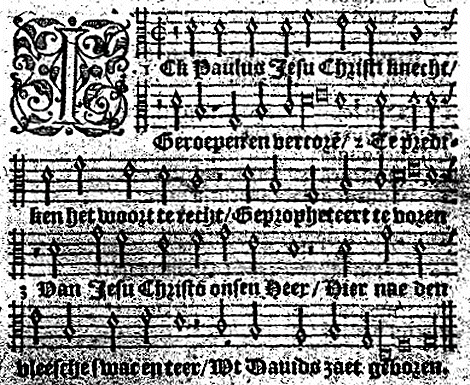 ICk Paulus Jesu Christi knecht/
Geroepen en vercorē/ 2 Te predi⸗
ken het woort te recht/ Gepropheteert te voren
3 Van Jesu Christo onsen Heer/ Hier nae den
vleesche swac en teer/ Wt Davids zaet geboren.